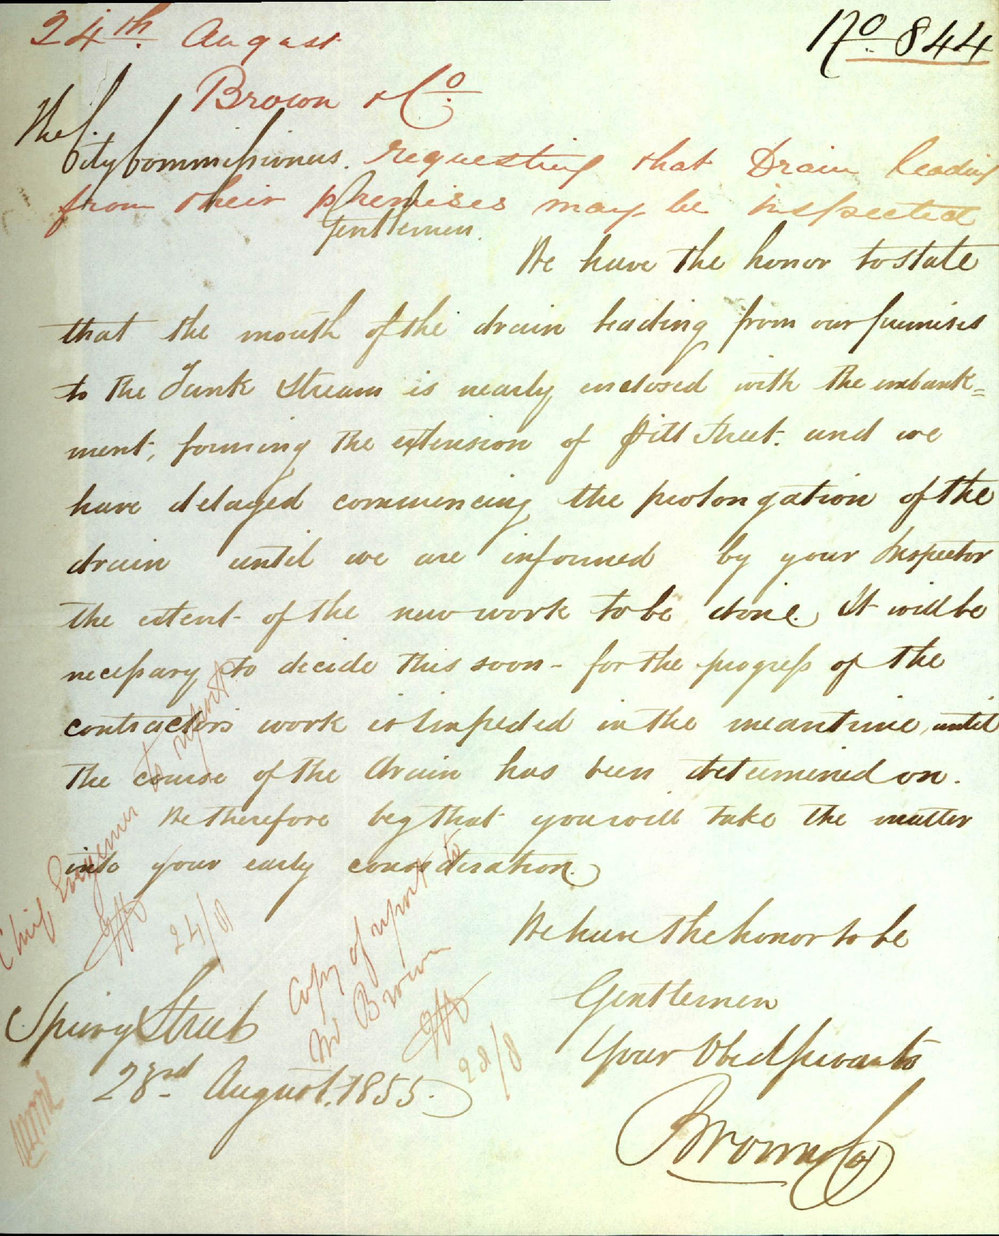 24th August
No. 844
Brown & Co.
The
City Commissioners.
requesting that Drain leading
from their premises may be inspected
Gentlemen.
We have the honor to state
that the mouth of the drain leading from our premises
to the Tank Stream is nearly enclosed with the embank=
ment, forming the extension of Pitt Street. and we
have delayed commencing the prolongation of the
drain until we are informed by your Inspector
the extent of the new work to be done. It will be
necessary to decide this soon - for the progress of the
contractors work is impeded in the meantime, until
the course of the drain has been determined on.
We therefore beg that you will take the matter
into your early consideration.
We have the honor to be
Gentlemen
Your Obed Servants
Brown & Co
Spring Street
23rd August. 1855.
Chief Engineer to report
24/8
Copy of report to
Mr Brown
28/8